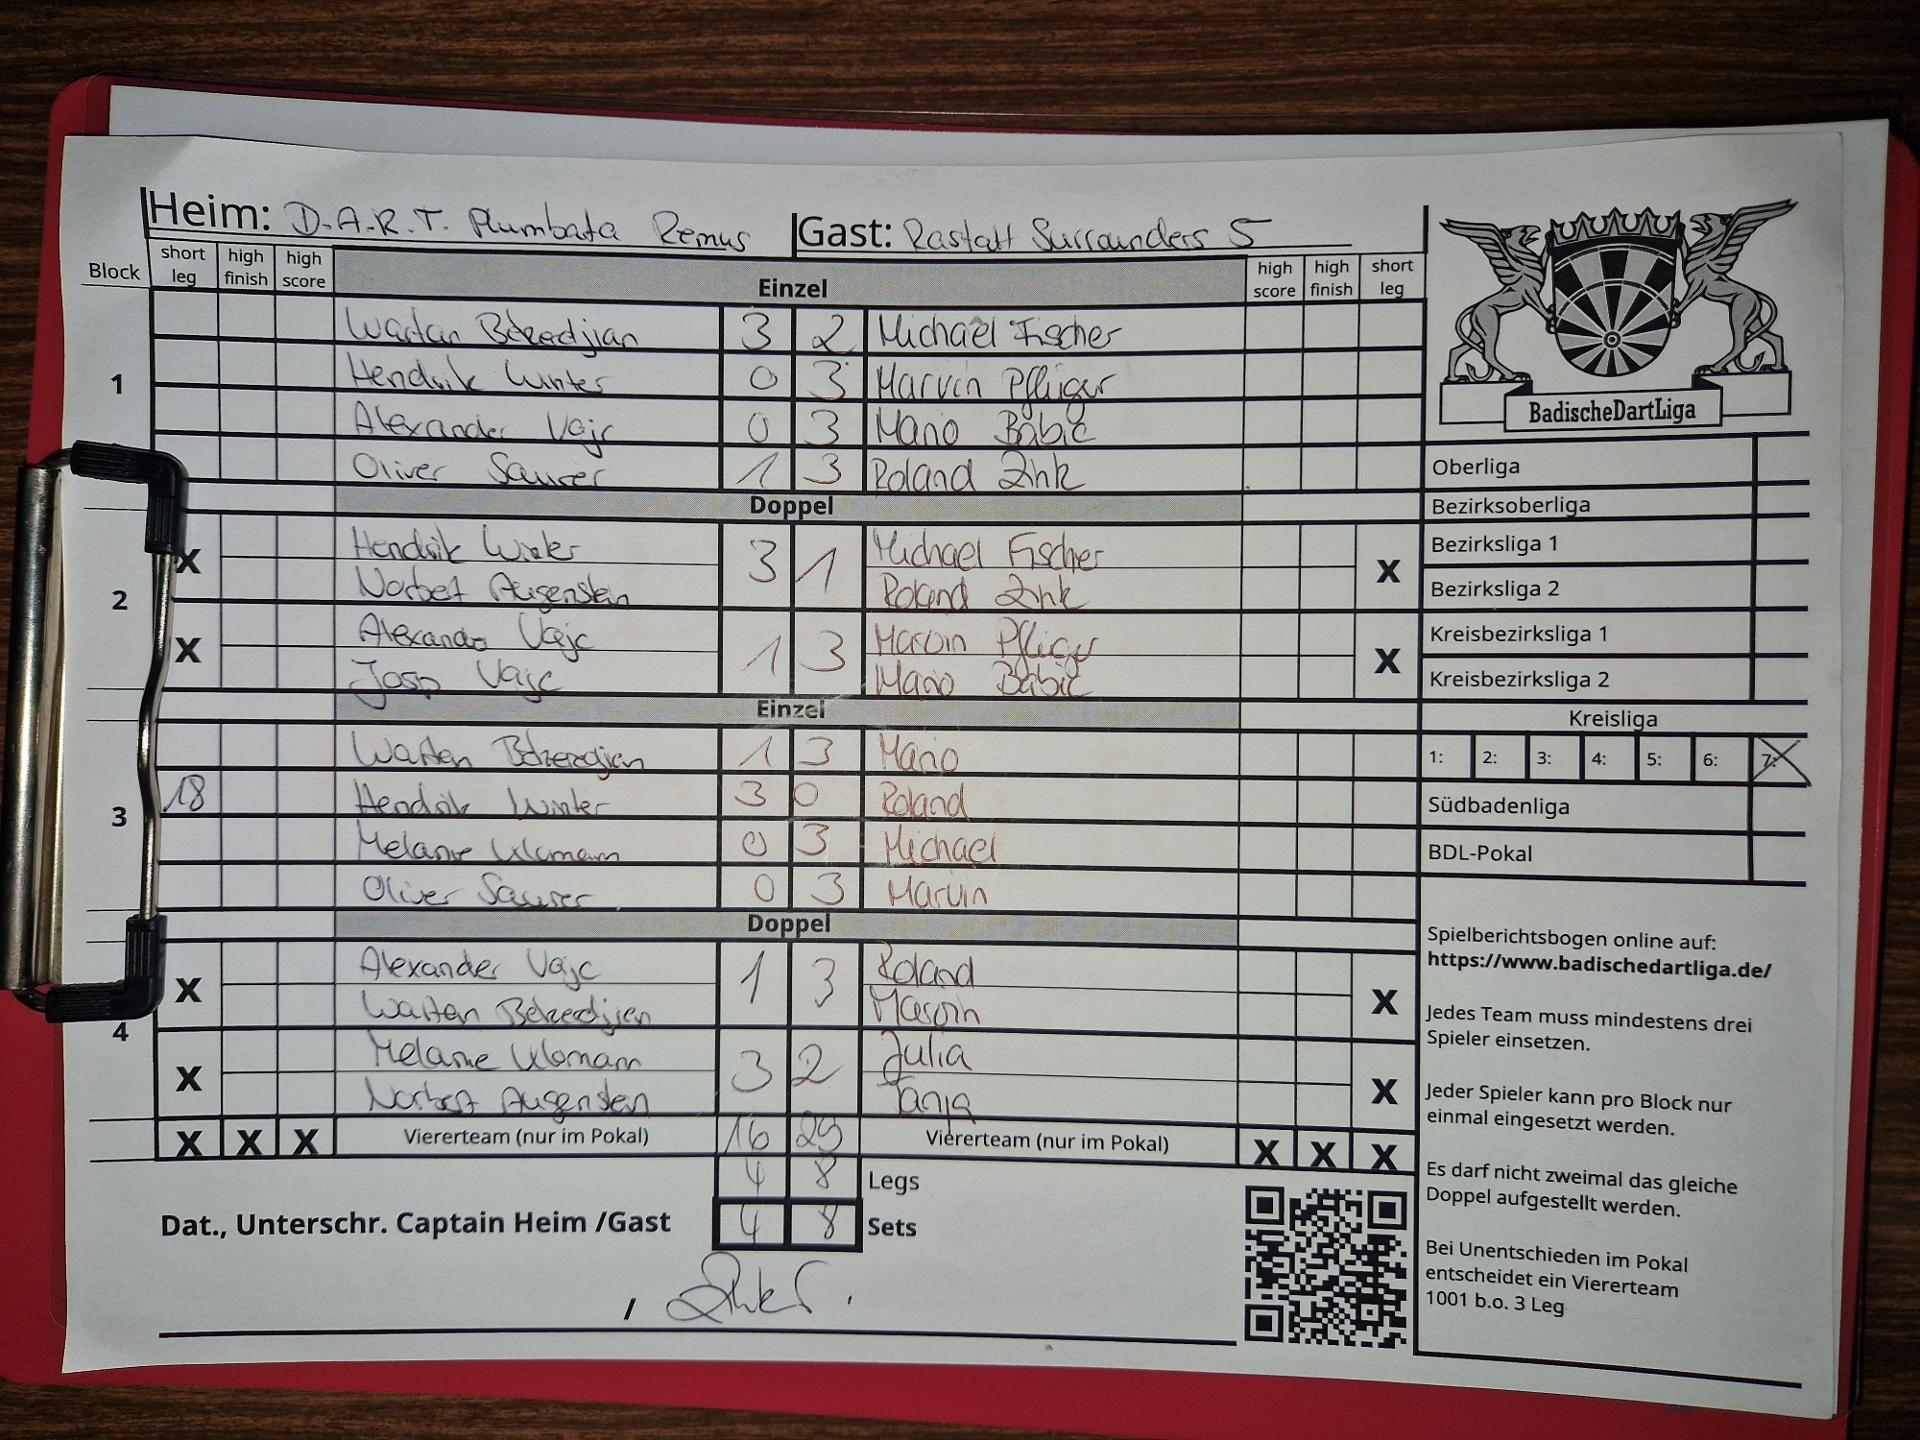 Heim: D.A.R.T. Plumbata Remus Gast: Rastatt Surrounders 5
Block short leg high finish high score Einzel high score high finish short leg
1
Wartan Bezedjian 3 2 Michael Fischer
Hendrik Winter 0 3 Marvin Pflüger
Alexander Vajc 0 3 Mario Babic
Oliver Saurer 1 3 Roland Zink
Doppel
2
X Hendrik Winter 3 1 Michael Fischer X
Norbert Augenstein Roland Zink
X Alexander Vajc 1 3 Marvin Pflüger X
Josip Vajc Mario Babic
Einzel
3
Wartan 1 3 Mario
18 Hendrik Winter 3 0 Roland
Melanie 0 3 Michael
Oliver Saurer 0 3 Marvin
Doppel
4
X Alexander Vajc 1 3 Roland X
Wartan Bezedjian Marvin
X Melanie 3 2 Julia X
Norbert Augenstein Tanja
X X X Viererteam (nur im Pokal) 16 29 Viererteam (nur im Pokal) X X X
4 8 Legs
Dat., Unterschr. Captain Heim /Gast 4 8 Sets
/
BadischeDartLiga
Oberliga
Bezirksoberliga
Bezirksliga 1
Bezirksliga 2
Kreisbezirksliga 1
Kreisbezirksliga 2
Kreisliga
1: 2: 3: 4: 5: 6: 7:
Südbadenliga
BDL-Pokal
Spielberichtsbogen online auf:
https://www.badischedartliga.de/
Jedes Team muss mindestens drei
Spieler einsetzen.
Jeder Spieler kann pro Block nur
einmal eingesetzt werden.
Es darf nicht zweimal das gleiche
Doppel aufgestellt werden.
Bei Unentschieden im Pokal
entscheidet ein Viererteam
1001 b.o. 3 Leg